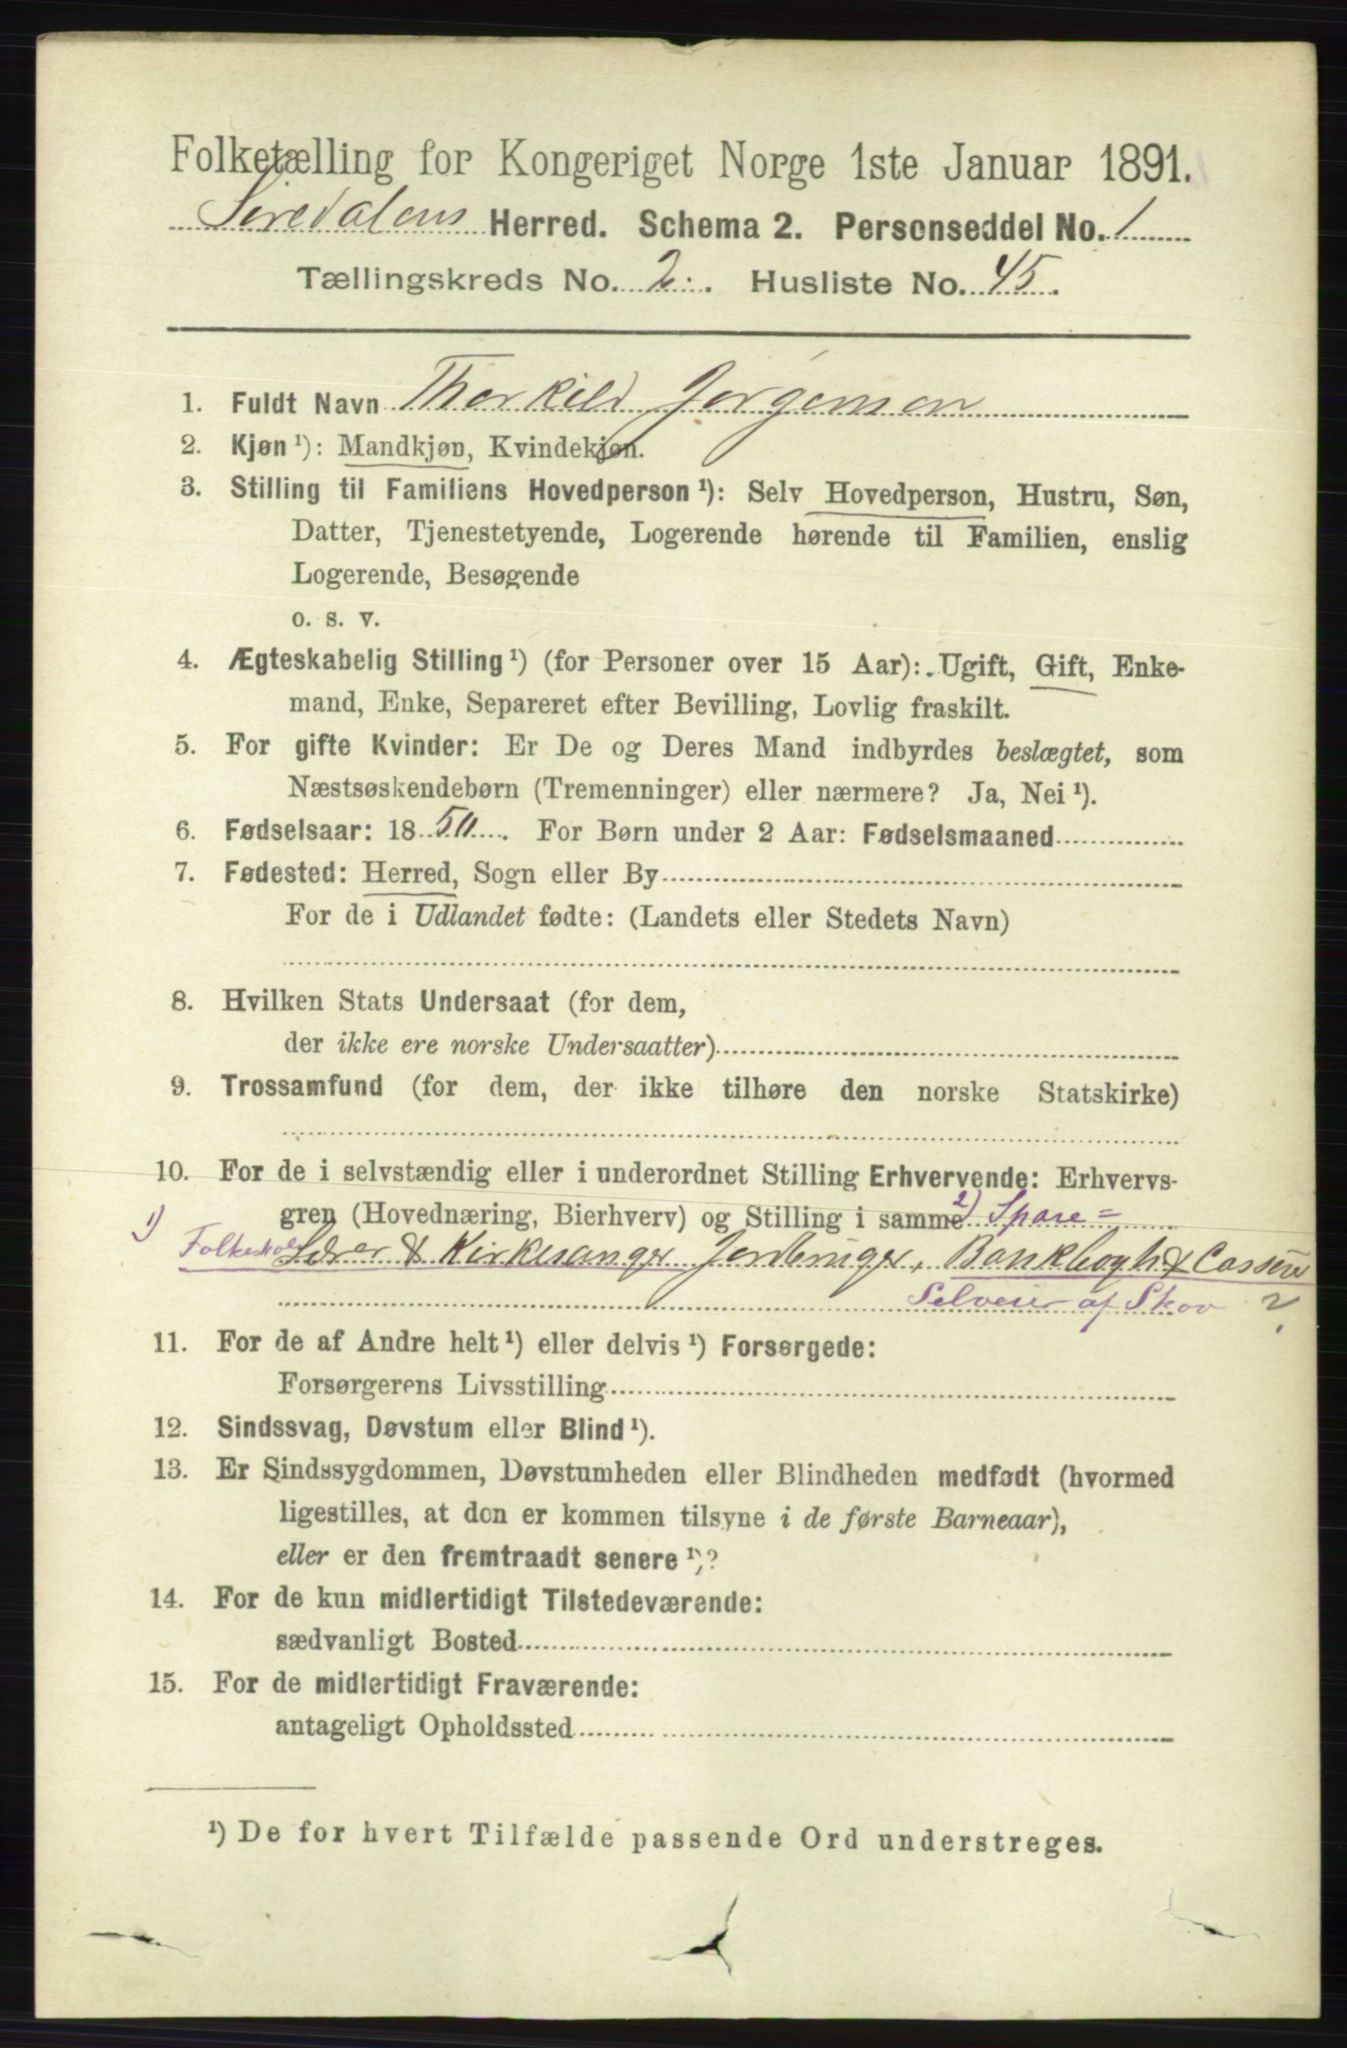 Folketælling for Kongeriget Norge 1ste Januar 1891.
Siredalens Herred. Schema 2. Personseddel No. 1
Tællingskreds No. 2. Husliste No. 45.
1. Fuldt Navn Thorkild Jørgensen
2. Kjøn ¹): Mandkjøn, Kvindekjøn.
3. Stilling til Familiens Hovedperson ¹): Selv Hovedperson, Hustru, Søn,
Datter, Tjenestetyende, Logerende hørende til Familien, enslig
Logerende, Besøgende
o. s. v.
4. Ægteskabelig Stilling ¹) (for Personer over 15 Aar): Ugift, Gift, Enke-
mand, Enke, Separeret efter Bevilling, Lovlig fraskilt.
5. For gifte Kvinder: Er De og Deres Mand indbyrdes beslægtet, som
Næstsøskendebørn (Tremenninger) eller nærmere? Ja, Nei ¹).
6. Fødselsaar: 1850. For Børn under 2 Aar: Fødselsmaaned
7. Fødested: Herred, Sogn eller By
For de i Udlandet fødte: (Landets eller Stedets Navn)
8. Hvilken Stats Undersaat (for dem,
der ikke ere norske Undersaatter)
9. Trossamfund (for dem, der ikke tilhøre den norske Statskirke)
10. For de i selvstændig eller i underordnet Stilling Erhvervende: Erhvervs-
gren (Hovednæring, Bierhverv) og Stilling i samme 2) Spare=
1) Folkeskole Lærer & Kirkesanger Jordbruger, Bankbogh. & Casserer
Selveier af Skov ?
11. For de af Andre helt ¹) eller delvis ¹) Forsørgede:
Forsørgerens Livsstilling
12. Sindssvag, Døvstum eller Blind ¹).
13. Er Sindssygdommen, Døvstumheden eller Blindheden medfødt (hvormed
ligestilles, at den er kommen tilsyne i de første Barneaar),
eller er den fremtraadt senere ¹)?
14. For de kun midlertidigt Tilstedeværende:
sædvanligt Bosted
15. For de midlertidigt Fraværende:
antageligt Opholdssted
¹) De for hvert Tilfælde passende Ord understreges.